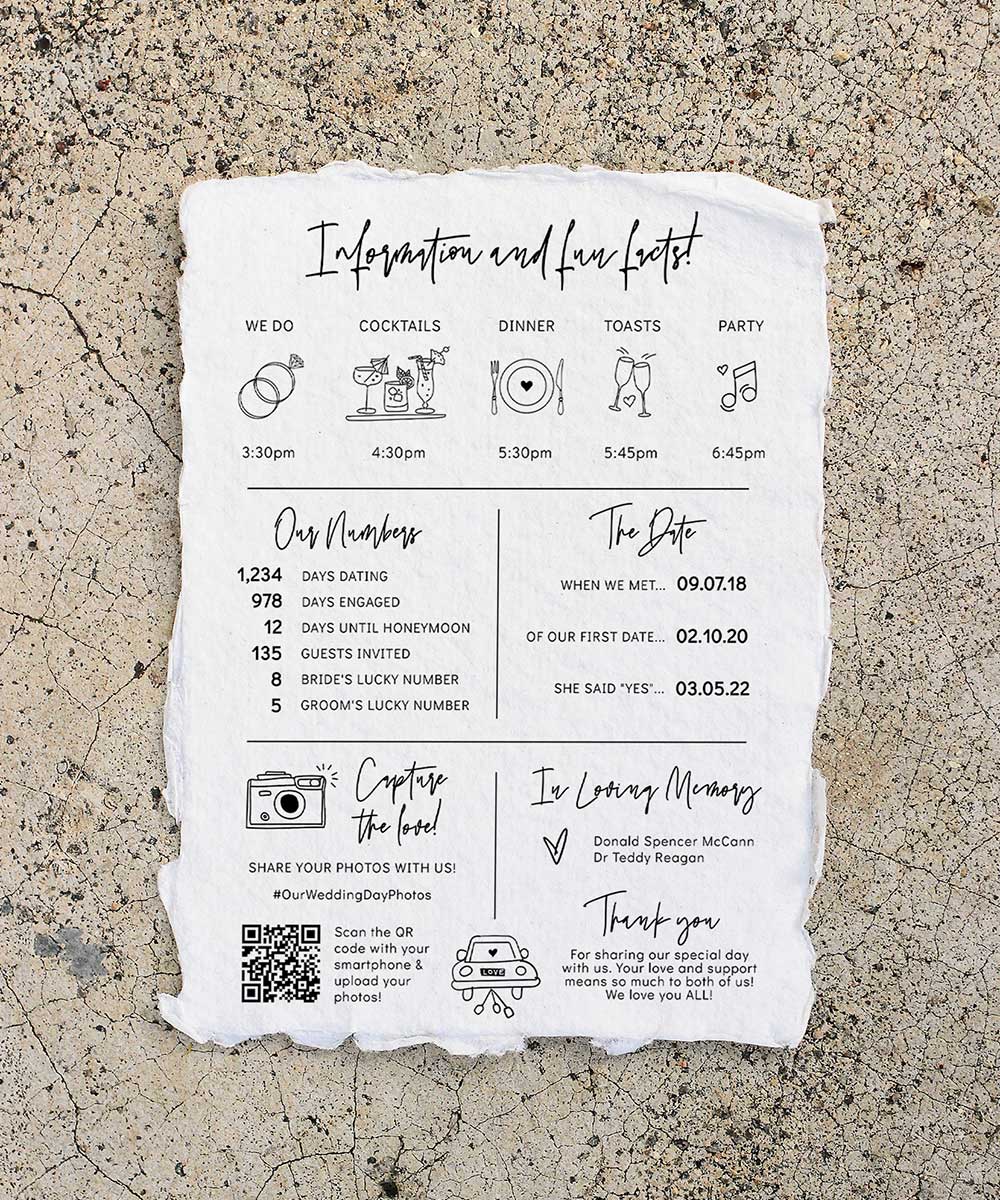 Information and fun facts!
WE DO COCKTAILS DINNER TOASTS PARTY
3:30pm 4:30pm 5:30pm 5:45pm 6:45pm
Our Numbers
1,234 DAYS DATING
978 DAYS ENGAGED
12 DAYS UNTIL HONEYMOON
135 GUESTS INVITED
8 BRIDE'S LUCKY NUMBER
5 GROOM'S LUCKY NUMBER
The Date
WHEN WE MET... 09.07.18
OF OUR FIRST DATE... 02.10.20
SHE SAID "YES"... 03.05.22
Capture
the love!
SHARE YOUR PHOTOS WITH US!
#OurWeddingDayPhotos
Scan the QR
code with your
smartphone &
upload your
photos!
LOVE
In Loving Memory
Donald Spencer McCann
Dr Teddy Reagan
Thank you
For sharing our special day
with us. Your love and support
means so much to both of us!
We love you ALL!